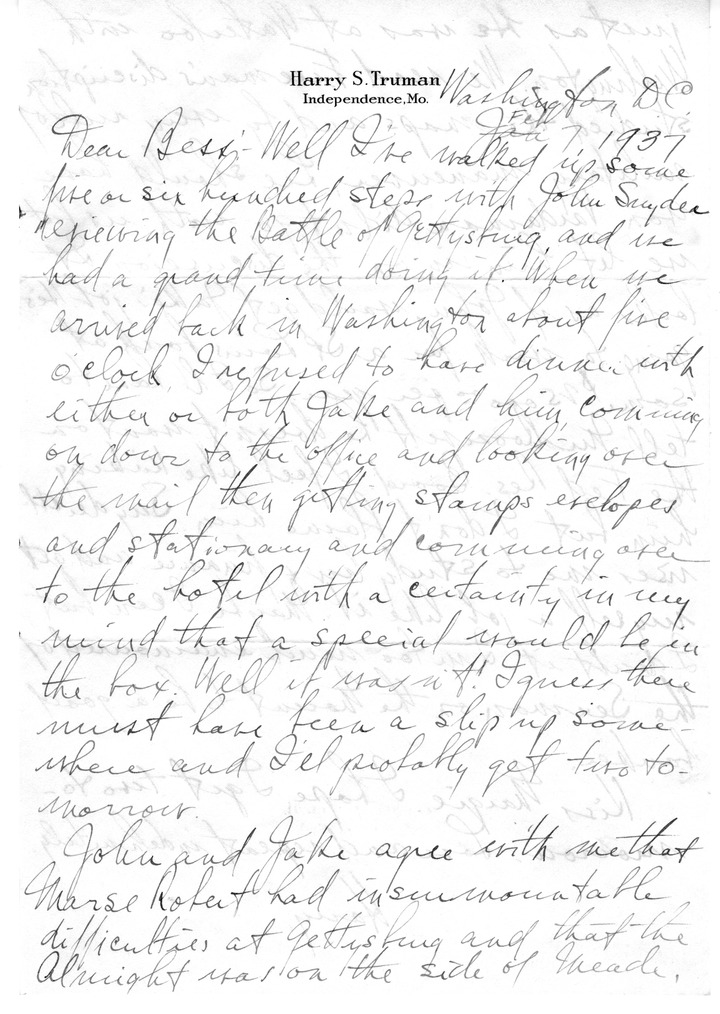 Harry S. Truman
Independence, Mo.
Washington, D.C.
Feb
Jan 7, 1937
Dear Bess:- Well I've walked up some
five or six hundred steps with John Snyder
reviewing the Battle of Gettysburg, and we
had a grand time doing it. When we
arrived back in Washington about five
o'clock, I refused to have dinner with
either or both Jake and him, comming
on down to the office and looking over
the mail then getting stamps evelopes
and stationary and comming over
to the hotel with a certainty in my
mind that a special would be in
the box. Well it wasn't! I guess there
must have been a slip up some-
where and I'el probably get two to-
morrow.
John and Jake agree with me that
Marse Robert had insurmountable
difficulties at Gettysburg and that the
Almight was on the side of Meade.